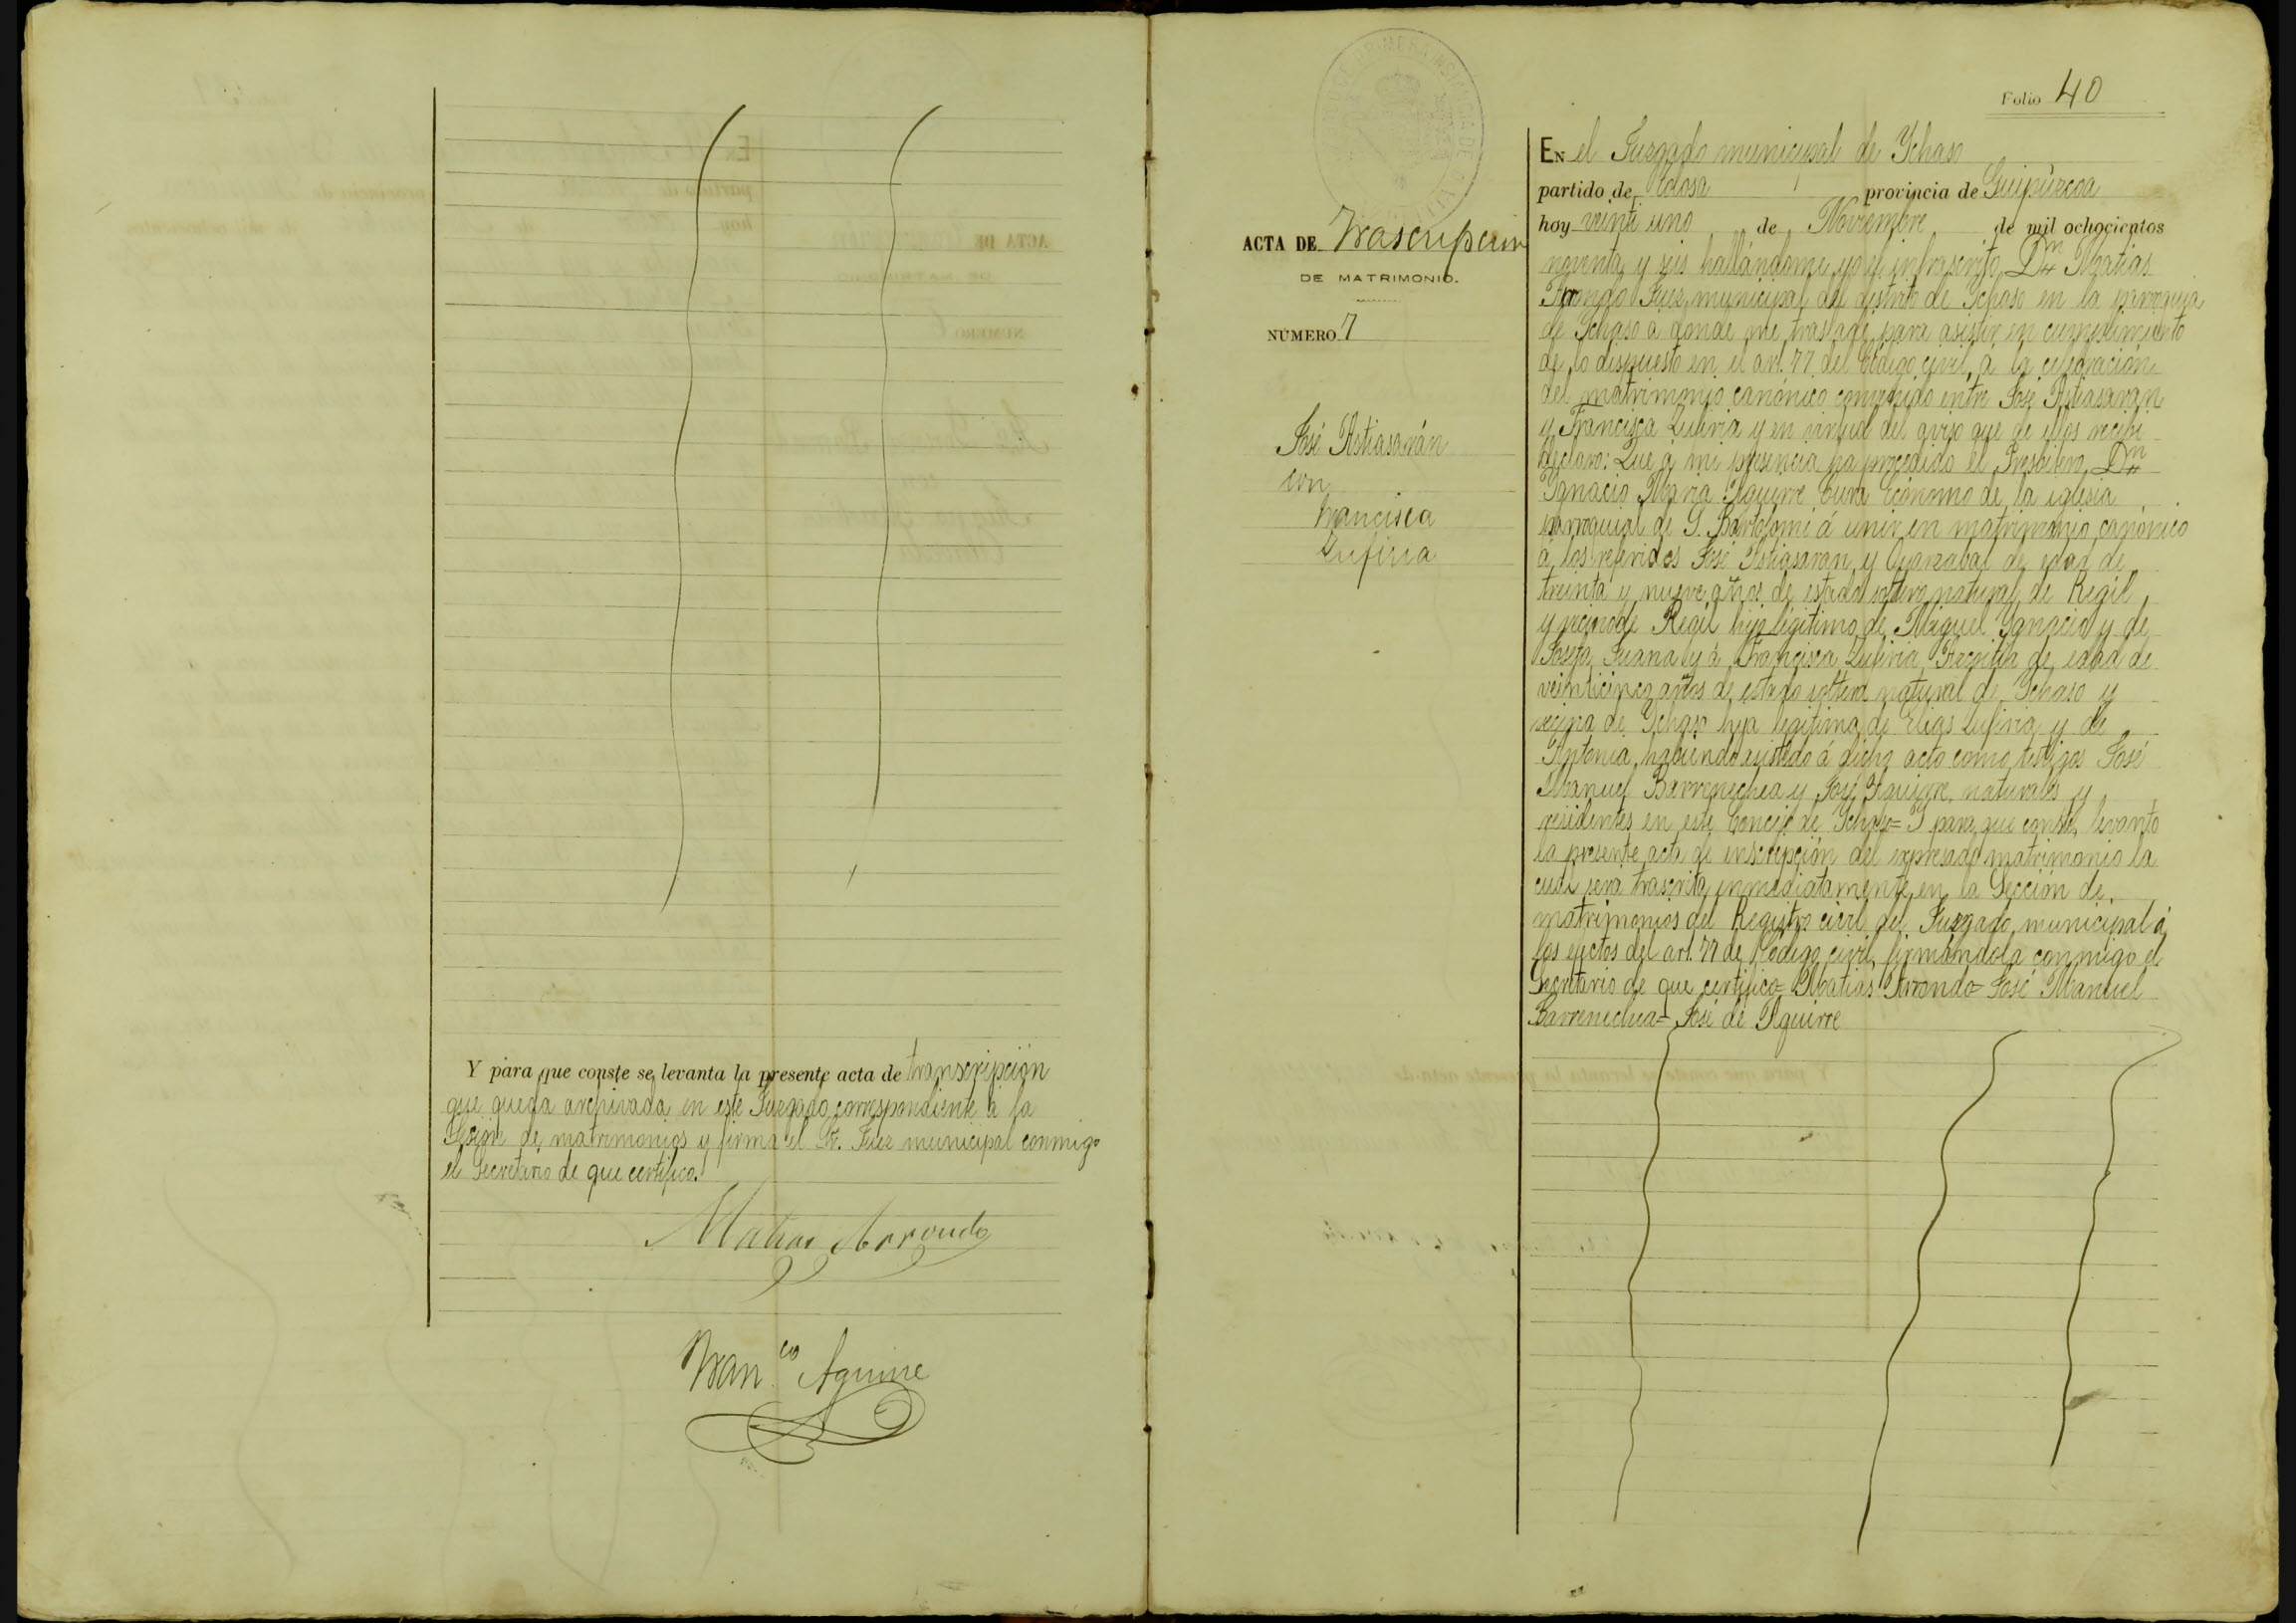 Y para que conste se levanta la presente acta de transcripción
que queda archivada en este Juzgado correspondiente á la
Sesión de matrimonios y firma el Sr. Juez municipal conmigo
el Secretario de que certifico.
Matias Arrondo
Fran.co Aguirre
Folio 40
ACTA DE Trascripcion
DE MATRIMONIO.
NÚMERO 7
José Astiasarán
con
Francisca
Lufiria
En el Juzgado municipal de Ychaso
partido de Tolosa provincia de Guipúzcoa
hoy veinti uno de Noviembre de mil ochocientos
noventa y seis hallándome yo el infrascrito Dn Matias
Arrondo Juez municipal del distrito de Ychaso en la parroquia
de Ychaso a donde me trasladé para asistir en cumplimiento
de lo dispuesto en el art. 77 del Código civil, a la celebración
del matrimonio canónico convenido entre José Astiasaran
y Francisca Lufiria y en virtud del aviso que de ellos recibi
declaro: Que á mi presencia ha procedido el Presbitero Dn
Ignacio Maria Aguirre Cura Ecónomo de la iglesia
parroquial de S. Bartolomé á unir en matrimonio canónico
á los referidos José Astiasaran y Oyarzabal de edad de
treinta y nueve años de estado soltero natural de Regil
y vecino de Regil hijo legitimo de Miguel Ygnacio y de
Josefa Juana y á Francisca Lufiria Azpitia de edad de
veinticinco años de estado soltera natural de Ychaso y
vecina de Ychaso hija legitima de Elias Lufiria y de
Antonia, habiendo asistido á dicho acto como testigos José
Manuel Barrenechea y José Aguirre, naturales y
residentes en este Concejo de Ychaso= Y para que conste, levanto
la presente acta de inscripción del expresado matrimonio la
cual sera trascrita inmediatamente en la Sección de
matrimonios del Registro civil del Juzgado municipal á
los efectos del art. 77 de Código civil, firmándola conmigo el
Secretario de que certifico= Matias Arrondo= José Manuel
Barrenechea= José de Aguirre